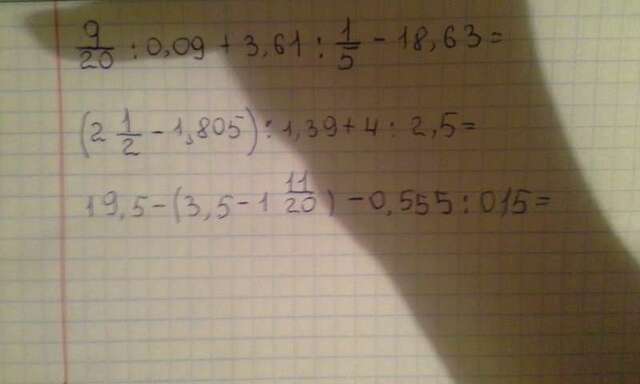 9/20 : 0,09 + 3,61 : 1/5 - 18,63 =
(2 1/2 - 1,805) : 1,39 + 4 : 2,5 =
19,5 - (3,5 - 1 11/20) - 0,555 : 0,15 =